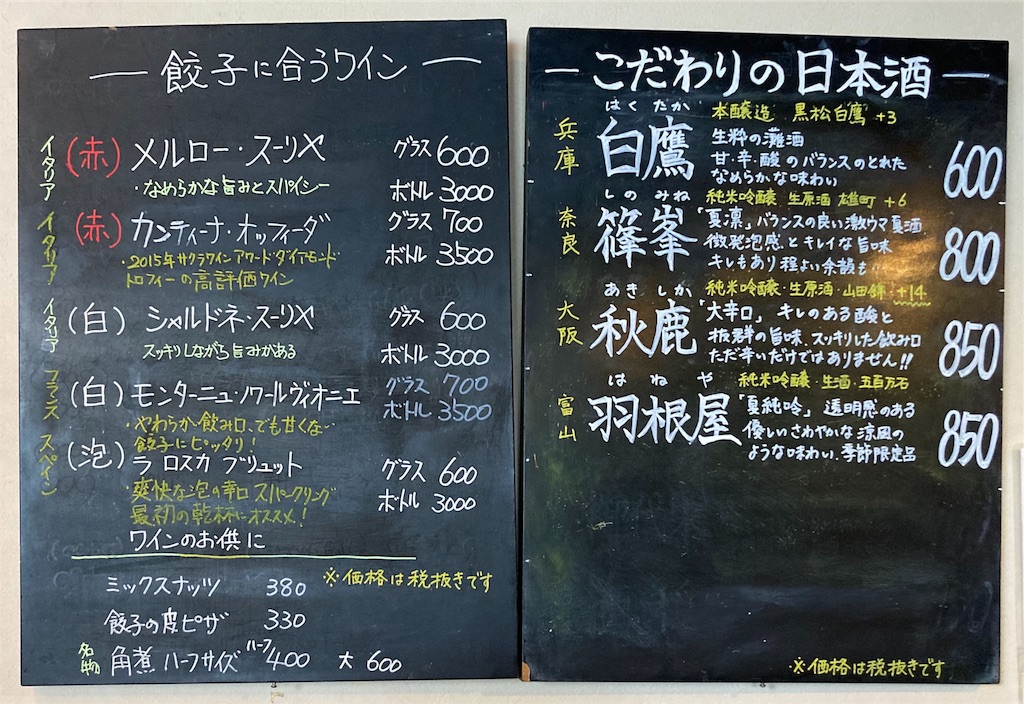 餃子に合うワイン
イタリア (赤) メルロー・スーリヤ グラス 600
・なめらかな旨みとスパイシー ボトル 3000
イタリア (赤) カンティーナ・オッフィーダ グラス 700
・2015年サクラワインアワードダイアモンド ボトル 3500
トロフィーの高評価ワイン
イタリア (白) シャルドネ・スーリヤ グラス 600
スッキリしながら旨みがある ボトル 3000
フランス (白) モンターニュ・ノワールヴィオニエ グラス 700
ボトル 3500
・やわらか飲み口、でも甘くない
餃子にピッタリ!
スペイン (泡) ラ ロスカ ブリュット グラス 600
・爽快な泡の辛口スパークリング ボトル 3000
最初の乾杯にオススメ!
ワインのお供に
ミックスナッツ 380 ※価格は税抜きです
餃子の皮ピザ 330
名物 角煮 ハーフサイズ ハーフ 400 大 600
こだわりの日本酒
兵庫 はくたか 本醸造 黒松白鷹 +3
白鷹 生粋の灘酒 600
甘・辛・酸のバランスのとれた
なめらかな味わい
奈良 しのみね 純米吟醸 生原酒 雄町 +6
篠峯 「夏凛」バランスの良い激ウマ夏酒 800
微発泡感とキレイな旨味
キレもあり程よい余韻も…
大阪 あきしか 純米吟醸・生原酒・山田錦 +14
秋鹿 「大辛口」キレのある酸と 850
抜群の旨味、スッキリした飲み口
ただ辛いだけではありません!!
富山 はねや 純米吟醸 生酒・五百万石
羽根屋 「夏純吟」透明感のある 850
優しいさわやかな涼風の
ような味わい、季節限定品
※価格は税抜きです